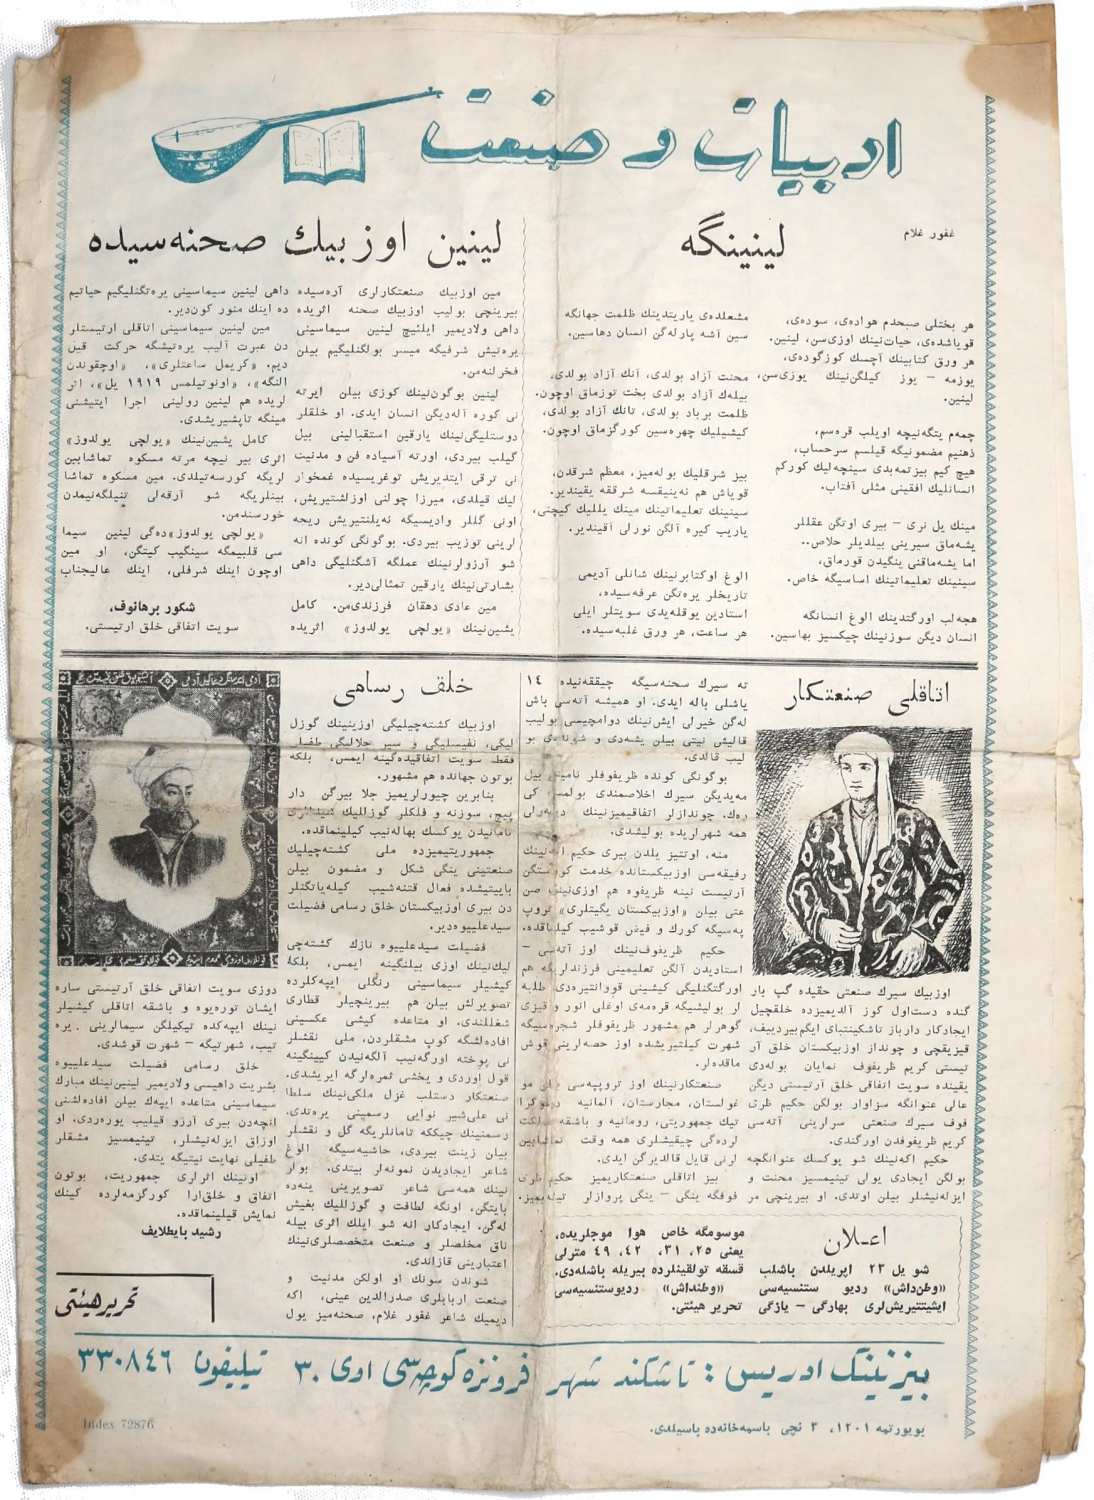 ادبیات و صنعت
غفور غلام
لینینگه
هر بختلی صبحدم هواده‌ی، سوده‌ی،
قویاشده‌ی، حیات‌نینك اوزی‌سن، لینین.
هر ورق کتابینك آچسك کوزگوده‌ی،
یوزمه – یوز کیلگن‌نینك یوزی‌سن،
لینین.
چمه‌م یتگه‌نیچه اویلب قره‌سم،
ذهنیم مضمونیگه قیلسم سرحساب،
هیچ کیم بیزتمه‌بدی سینچه‌لیك کورکم
انسانلیك افقینی مثلی آفتاب.
مینك یل نری – بیری اوتگن عقللر
یشه‌ماق سیرینی بیلدیلر خلاص..
اما یشه‌ماقنی ینگیدن قورماق،
سینینك تعلیماتینك اساسیگه خاص.
هجه‌لب اورگتدینك الوغ انسانگه
انسان دیگن سوزنینك چیکسیز بهاسین.
مشعلده‌ی یاریتدینك ظلمت جهانگه
سین آشه پارله‌گن انسان دهاسین.
محنت آزاد بولدی، آنك آزاد بولدی،
بیله‌ك آزاد بولدی بخت توزماق اوچون.
ظلمت برباد بولدی، تانك آزاد بولدی،
کیشیلیك چهره‌سین کورگزماق اوچون.
بیز شرقلیك بوله‌میز، معظم شرقدن،
قویاش هم نه‌ینیقسه شرققه یقیندیر.
سینینك تعلیماتینك مینك یللیك کیچنی،
یاریب کیره آلگن نورلی آقیندیر.
الوغ اوکتابرنینك شانلی آدیمی
تاریخلر یره‌تگن عرفه‌سیده،
استادین یوقله‌یدی سویتلر ایلی
هر ساعت، هر ورق غلبه‌سیده.
لینین اوزبیك صحنه‌سیده
مین اوزبیك صنعتکارلری آره‌سیده
بیرینچی بولیب اوزبیك صحنه اثریده
داهی ولادیمیر ایلئیچ لینین سیماسینی
یره‌تیش شرفیگه میسر بولگنلیگیم بیلن
فخرلنه‌من.
لینین بوگون‌نینك کوزی بیلن ایرته
نی کوره آله‌دیگن انسان ایدی. او خلقلر
دوستلیگی‌نینك یارقین استقبالینی بیل
گیلب بیردی، اورته آسیاده فن و مدنیت
نی ترقی ایتدیریش توغریسیده غمخوار
لیك قیلدی، میرزا چولنی اوزلشتیریش،
اونی گللر وادیسیگه نه‌یلنتیریش ریجه
لرینی توزیب بیردی. بوگونگی کونده انه
شو آرزولرنینك عملگه آشگنلیگی داهی
بشارتی‌نینك یارقین تمثالی‌دیر.
مین عادی دهقان فرزندی‌من. کامل
یشین‌نینك «یولچی یولدوز» اثریده
داهی لینین سیماسینی یره‌تگنلیگیم حیاتیم
ده اینك منور کون‌دیر.
مین لینین سیماسینی اتاقلی ارتیستلر
دن عبرت آلیب یره‌تیشگه حرکت قیل
دیم. «کریمل ساعتلری»، «اوچقوندن
النگه»، «اونوتیلمس ۱۹۱۹ یل»، اثر
لریده هم لینین رولینی اجرا ایتیشنی
مینگه تاپشیریشدی.
کامل یشین‌نینك «یولچی یولدوز»
اثری بیر نیچه مرته مسکوه تماشابین
لریگه کورسه‌تیلدی. مین مسکوه تماشا
بینلریگه شو آرقه‌لی تنیلگه‌نیمدن
خورسندمن.
«یولچی یولدوز»ده‌گی لینین سیما
سی قلبیمگه سینگیب کیتگن، او مین
اوچون اینك شرفلی، اینك عالیجناب
شکور برهانوف،
سویت اتفاقی خلق ارتیستی.
اتاقلی صنعتکار
اوزبیك سیرك صنعتی حقیده گپ بار
گنده دست‌اول کوز آلدیمیزده خلقچیل
ایجادکار دارباز تاشکینتبای ایگم‌بیردییف،
قیزیقچی و چونداز اوزبیکستان خلق آر
تیستی کریم ظریفوف نمایان بوله‌دی
یقینده سویت اتفاقی خلق آرتیستی دیگن
عالی عنوانگه سزاوار بولگن حکیم ظری
فوف سیرك صنعتی سرارینی آته‌سی
کریم ظریفوفدن اورگندی.
حکیم اکه‌نینك شو یوکسك عنوانگچه
بولگن ایجادی یولی تینیمسیز محنت و
ایزله‌نیشلر بیلن اوتدی. او بیرینچی مر
ته سیرك سحنه‌سیگه چیققه‌نیده ۱۴
یاشلی باله ایدی. او همیشه آته‌سی باش
له‌گن خیرلی ایش‌نینك دوامچیسی بولیب
قالیش نیتی بیلن یشه‌دی و شونده‌ی بو
لیب قالدی.
بوگونگی کونده ظریفوفلر نامینی بیل
مه‌یدیگن سیرك اخلاصمندی بولمسه کی
ره‌ك. چوندازلر اتفاقیمیزنینك
همه شهرلریده بولیشدی.
منه، اوتتیز یلدن بیری حکیم
رفیقه‌سی اوزبیکستانده خدمت کورستگن
آرتیست نینه ظریفوه هم اوزی‌نینك صن
عتی بیلن «اوزبیکستان یگیتلری» تروپ
په‌سیگه کورك و فیض قوشیب کیلماقده.
حکیم ظریفوف‌نینك اوز آته‌سی –
استادیدن آلگن تعلیمینی فرزندلریگه هم
اورگتگنلیگی کیشینی قووانتیره‌دی. طلبه
لر بولیشیگه قره‌مه‌ی اوغلی انور و قیزی
گوهرلر هم مشهور ظریفوفلر شجره‌سیگه
شهرت کیلتیریشده اوز حصه‌لرینی قوش
ماقده‌لر.
صنعتکارنینك اوز تروپپه‌سی بیلن مو
غولستان، مجارستان، آلمانیه دموکرا
تیك جمهوریتی، رومانیه و باشقه مملکت
لرده‌گی چیقیشلری همه وقت تماشابین
لرنی قایل قالدیرگن ایدی.
بیز اتاقلی صنعتکاریمیز حکیم ظری
فوفگه ینگی – ینگی پروازلر تیله‌یمیز.
خلق رسامی
اوزبیك کشته‌چیلیگی اوزینینك گوزل
لیگی، نفیسلیگی و سیر جلالیگی طفیلی
فقط سویت اتفاقیده‌گینه ایمس، بلکه
بوتون جهانده هم مشهور.
بنابرین چیورلریمیز جلا بیرگن دار
پیچ، سوزنه و قلکلر گوزللیك شیدالری
تامانیدن یوکسك بهاله‌نیب کیلینماقده.
جمهوریتیمیزده ملی کشته‌چیلیك
صنعتینی ینگی شکل و مضمون بیلن
بایبتیشده فعال قتنه‌شیب کیله‌یاتگنلر
دن بیری اوزبیکستان خلق رسامی فضیلت
سیدعلییوه‌دیر.
فضیلت سیدعلییوه نازك کشته‌چی
لیك‌نینك اوزی بیلنگینه ایمس، بلکه
کیشیلر سیماسینی رنگلی ایپه‌کلرده
تصویرلش بیلن هم بیرینچیلر قطاری
شغللندی. او متاعده کیشی عکسینی
افاده‌لشگه کوپ مشقلردن، ملی نقشلر
نی پوخته اورگه‌نیب آلگه‌نیدن کیینگینه
قول اوردی و یخشی ثمره‌لرگه ایریشدی.
صنعتکار دستلب غزل ملکی‌نینك سلطا
نی علی‌شیر نوایی رسمینی یره‌تدی.
رسمنینك چیککه تامانلریگه گل و نقشلر
بیلن زینت بیردی، حاشیه‌سیگه الوغ
شاعر ایجادیدن نمونه‌لر بیتدی. بولر
نینك همه‌سی شاعر تصویرینی ینه‌ده
بایتگن، اونگه لطافت و گوزللیك بغیش
له‌گن. ایجادکار انه شو ایلك اثری بیله
ناق مخلصلر و صنعت متخصصلری‌نینك
اعتبارینی قازاندی.
شوندن سونك او اولکن مدنیت و
صنعت اربابلری صدرالدین عینی، اکه
دیمیك شاعر غفور غلام، صحنه‌میز یول
دوزی سویت اتفاقی خلق آرتیستی ساره
ایشان توره‌یوه و باشقه اتاقلی کیشیلر
نینك ایپه‌کده تیکیلگن سیمالرینی یره
تیب، شهرتیگه – شهرت قوشدی.
خلق رسامی فضیلت سیدعلییوه
بشریت داهیسی ولادیمیر لینین‌نینك مبارك
سیماسینی متاعده ایپه‌ك بیلن افاده‌لشنی
انچه‌دن بیری آرزو قیلیب یوره‌ردی. او
اوزاق ایزله‌نیشلر، تینیمسیز مشقلر
طفیلی نهایت نیتیگه یتدی.
اونینك اثرلری جمهوریت، بوتون
اتفاق و خلق‌ارا کورگزمه‌لرده کینك
نمایش قیلینماقده.
رشید بایطلایف
تحریر هیئتی
اعـلان
شو یل ۲۳ اپریلدن باشلب
«وطن‌داش» ردیو ستنسیه‌سی
ایشیتتیریش‌لری بهارگی – یازگی
موسومگه خاص هوا موجلریده،
یعنی ۲۵، ۳۱، ۴۲، ۴۹ مترلی
قسقه تولقینلرده بیریله باشله‌دی.
«وطنداش» ردیوستنسیه‌سی
تحریر هیئتی.
بیزنینك ادریس: تاشکند شهر فرونزه کوچه‌سی اوی ۳۰ تیلیفون ۳۳۰۸۴۶
بویورتمه ۱۲۰۱، ۳ نچی باسمه‌خانه‌ده باسیلدی.
Index 72876